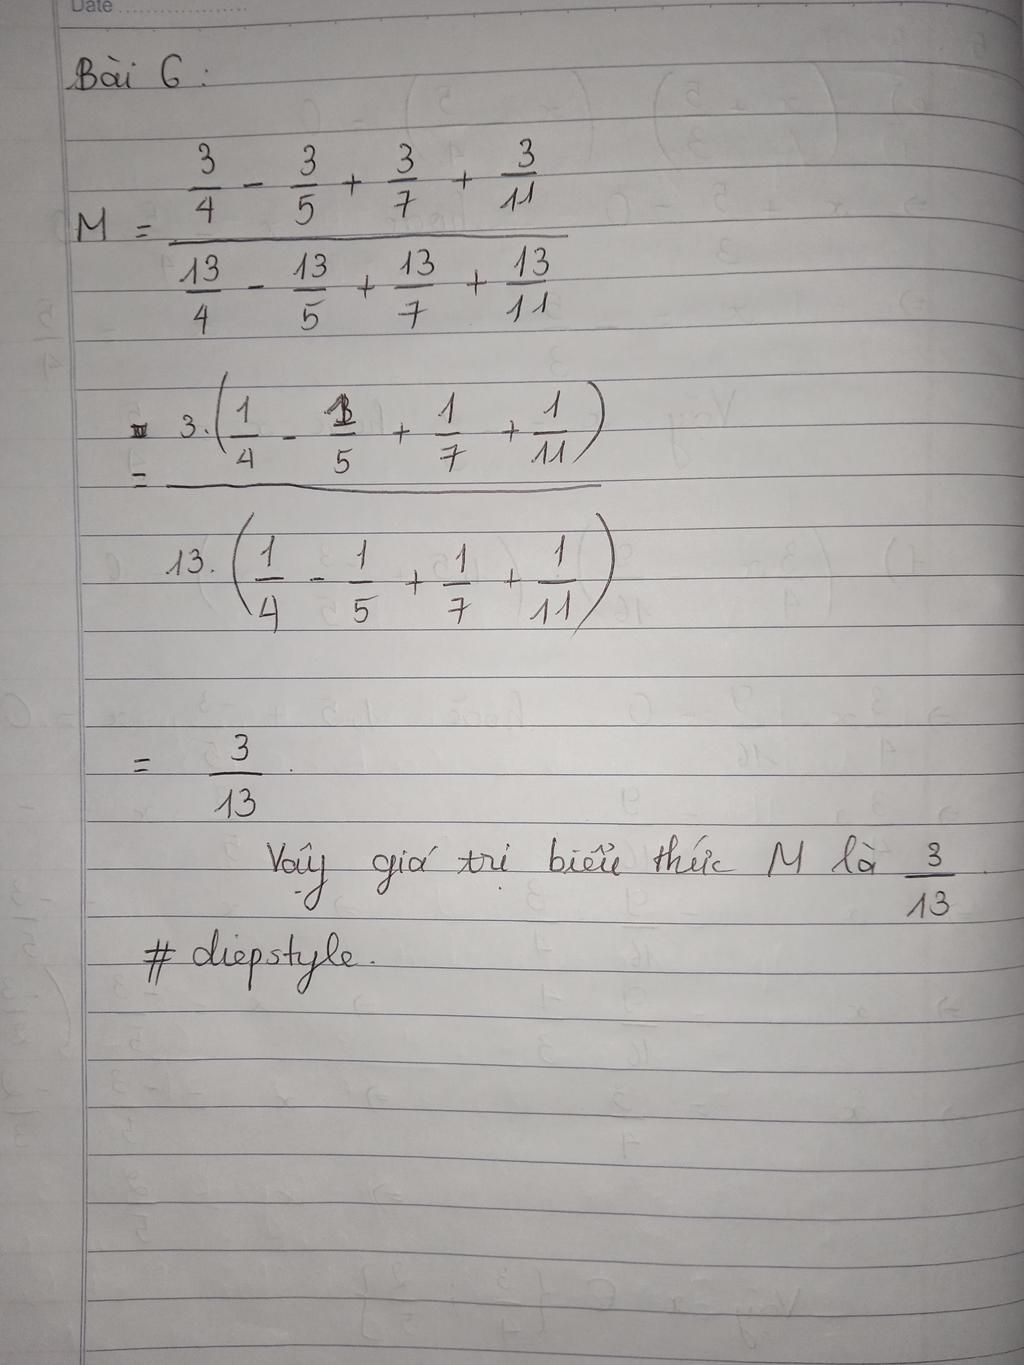 Date
Bài 6:
M = (3/4 - 3/5 + 3/7 + 3/11) / (13/4 - 13/5 + 13/7 + 13/11)
= 3.(1/4 - 1/5 + 1/7 + 1/11) / 13.(1/4 - 1/5 + 1/7 + 1/11)
= 3/13.
Vậy giá trị biểu thức M là 3/13.
# diepstyle.